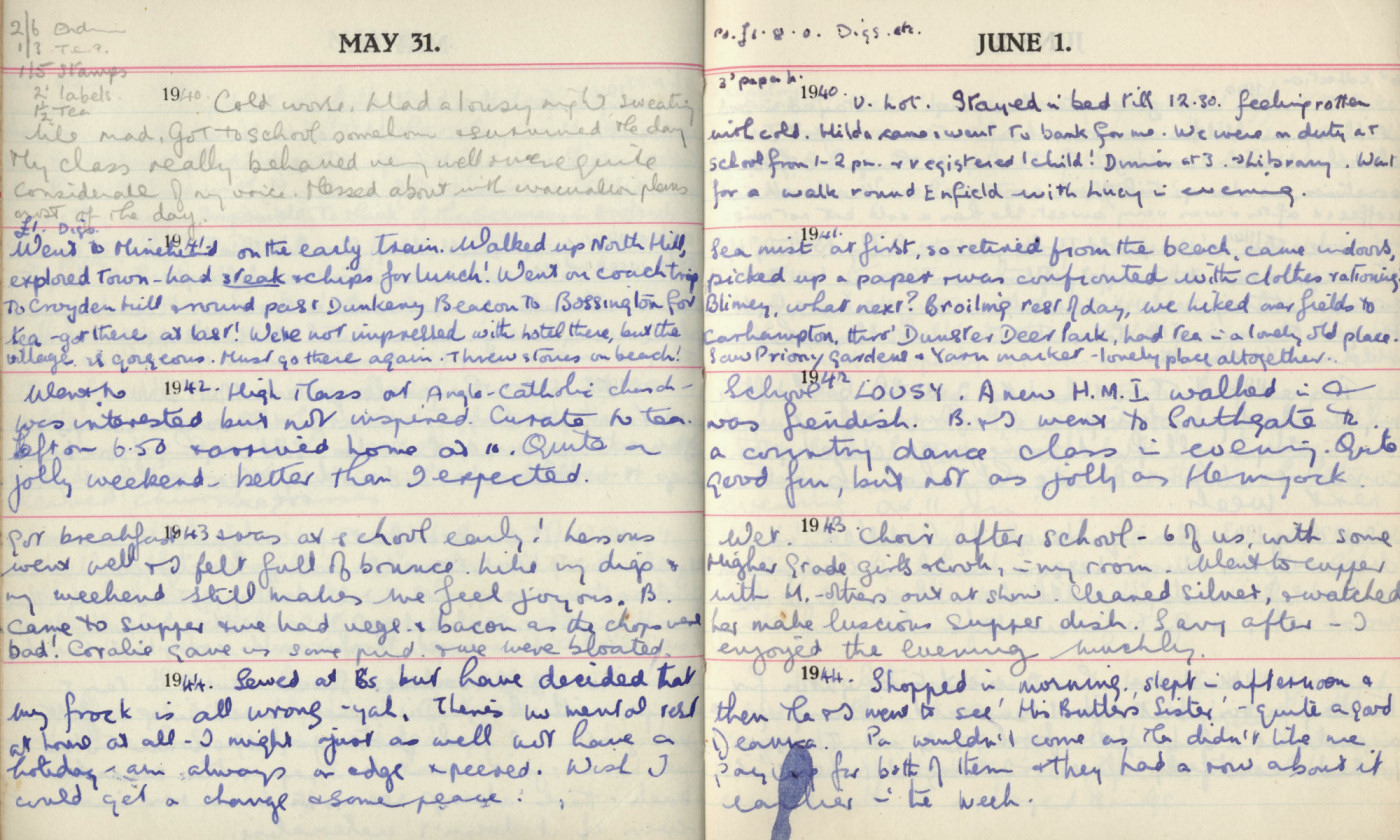 2/6
1/3 Tea.
1/5 Stamps
2 labels.
1½ Tea
MAY 31.
1940. Cold worse. Had a lousy night, sweating
like mad. Got to school somehow & survived the day
My class really behaved very well & were quite
considerate of my voice. Messed about with evacuation plans
most of the day.
£1. Digs.
1941
Went to Minehead on the early train. Walked up North Hill,
explored Town - had steak & chips for lunch! Went on coach trip
to Croydon Hill & round past Dunkery Beacon to Bossington for
tea - got there at last! Were not impressed with hotel there, but the
village is gorgeous. Must go there again. Threw stones on beach!
Went to 1942. High Mass at Anglo-Catholic church -
was interested but not inspired. Curate to tea.
Left on 6.50 & arrived home at 11. Quite a
jolly weekend - better than I expected.
Got breakfast 1943 & was at school early! Lessons
went well & I felt full of bounce. Like my digs &
my weekend still makes me feel joyous. B.
came to supper & we had vege. & bacon as the chops were
bad! Coralie gave us some pud. & we were bloated.
1944. Sewed at Bs. but have decided that
my frock is all wrong - yah. There's no mental rest
at home at all - I might just as well not have a
holiday - am always on edge & peeved. Wish I
could get a change & some peace!
£1.8.0. Digs. etc.
JUNE 1.
3' paper h.
1940. V. hot. Stayed in bed till 12.30. feeling rotten
with cold. Hilda came & went to bank for me. We were on duty at
school from 1-2 pm. & registered 1 child! Dinner at 3. & library. Went
for a walk round Enfield with Lucy in evening.
1941.
Sea mist at first, so retired from the beach, came indoors,
picked up a paper & was confronted with clothes rationing.
Blimey, what next? Broiling rest of day, we hiked over fields to
Carhampton, thro' Dunster Deer Park, had tea in a lovely old place.
Saw Priory gardens & Yarn market - lovely place altogether.
School 1942 LOUSY. A new H.M.I. walked in &
was fiendish. B. & I went to Southgate to
a country dance class in evening. Quite
good fun, but not as jolly as Hemyock
Wet. 1943 Choir after school - 6 of us, with some
Higher Grade girls & Cook, in my room. Went to supper
with M. - others out at show. Cleaned silver, & watched
her make luscious supper dish. Savy after - I
enjoyed the evening muchly.
1944. Shopped in morning, slept in afternoon &
then Ma & I went to see 'His Butler's Sister' - quite a good
Deanna. Pa wouldn't come as Ma didn't like me
paying for both of them & they had a row about it
earlier in the week.